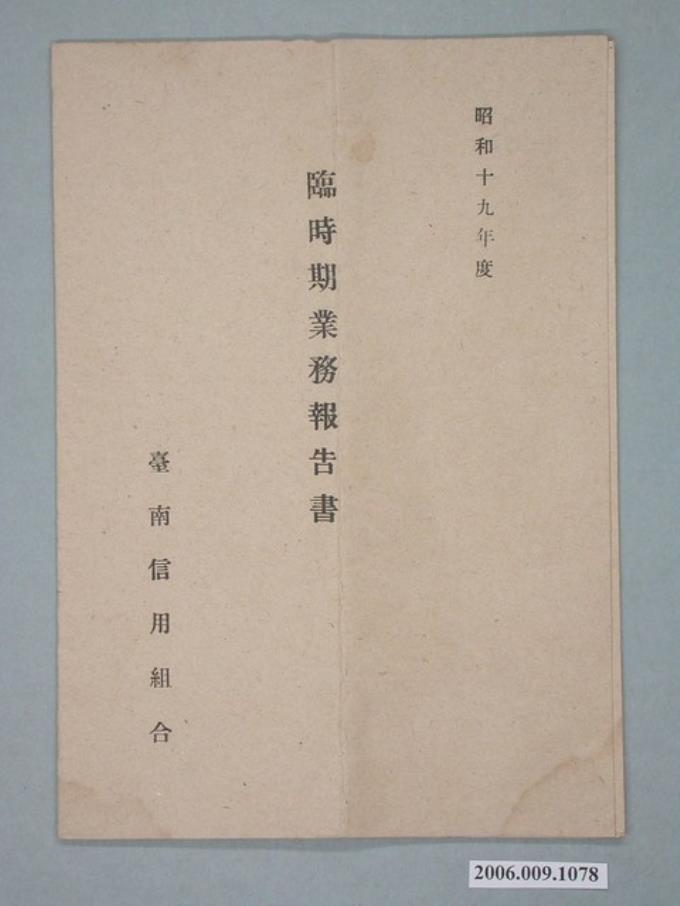 昭和十九年度
臨時期業務報告書
臺南信用組合
2006.009.1078